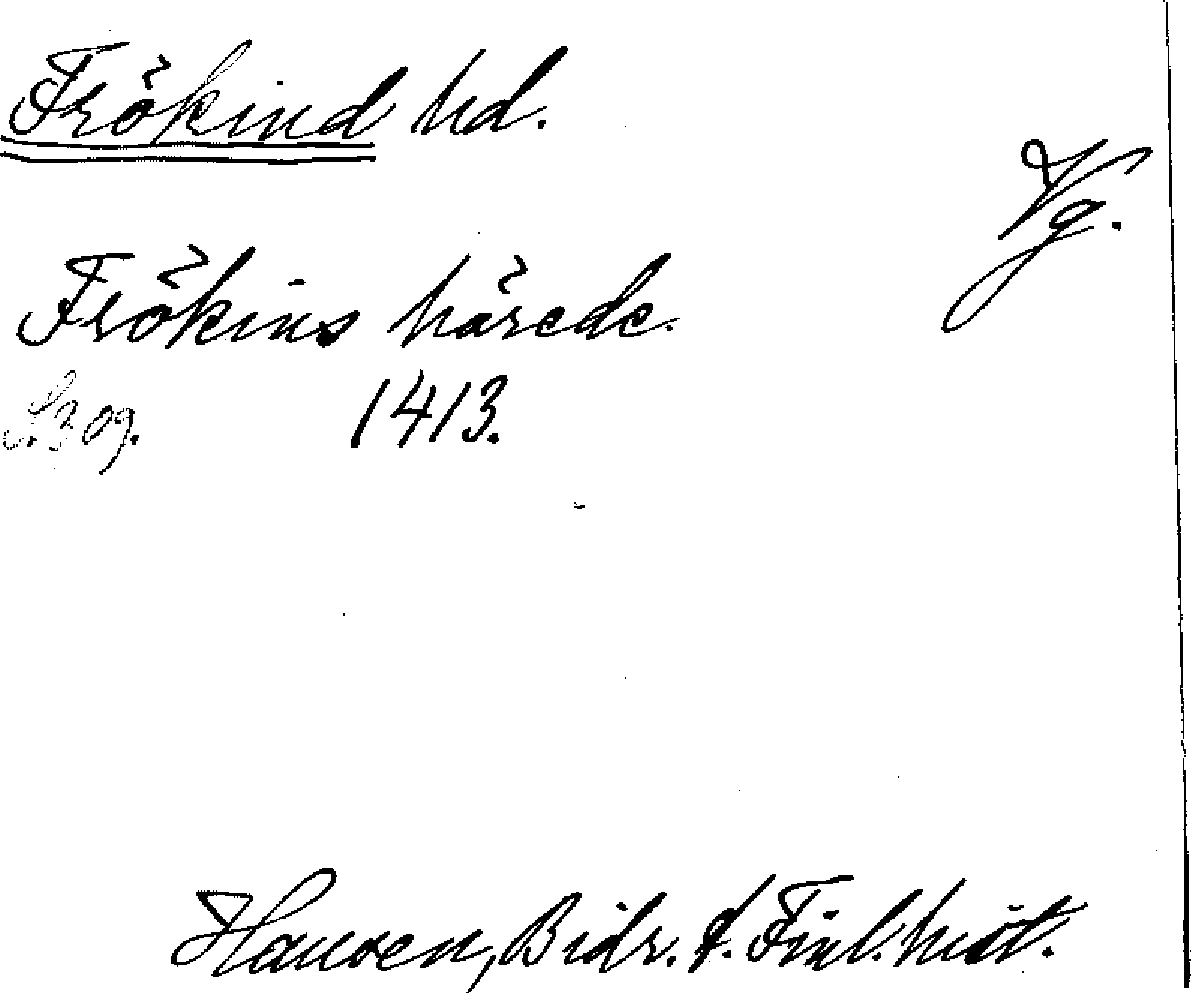 Frökind hd.
Vg.
Frökins härede.
S. 309. 1413.
Hausen, Bidr. t. Finl. hist.